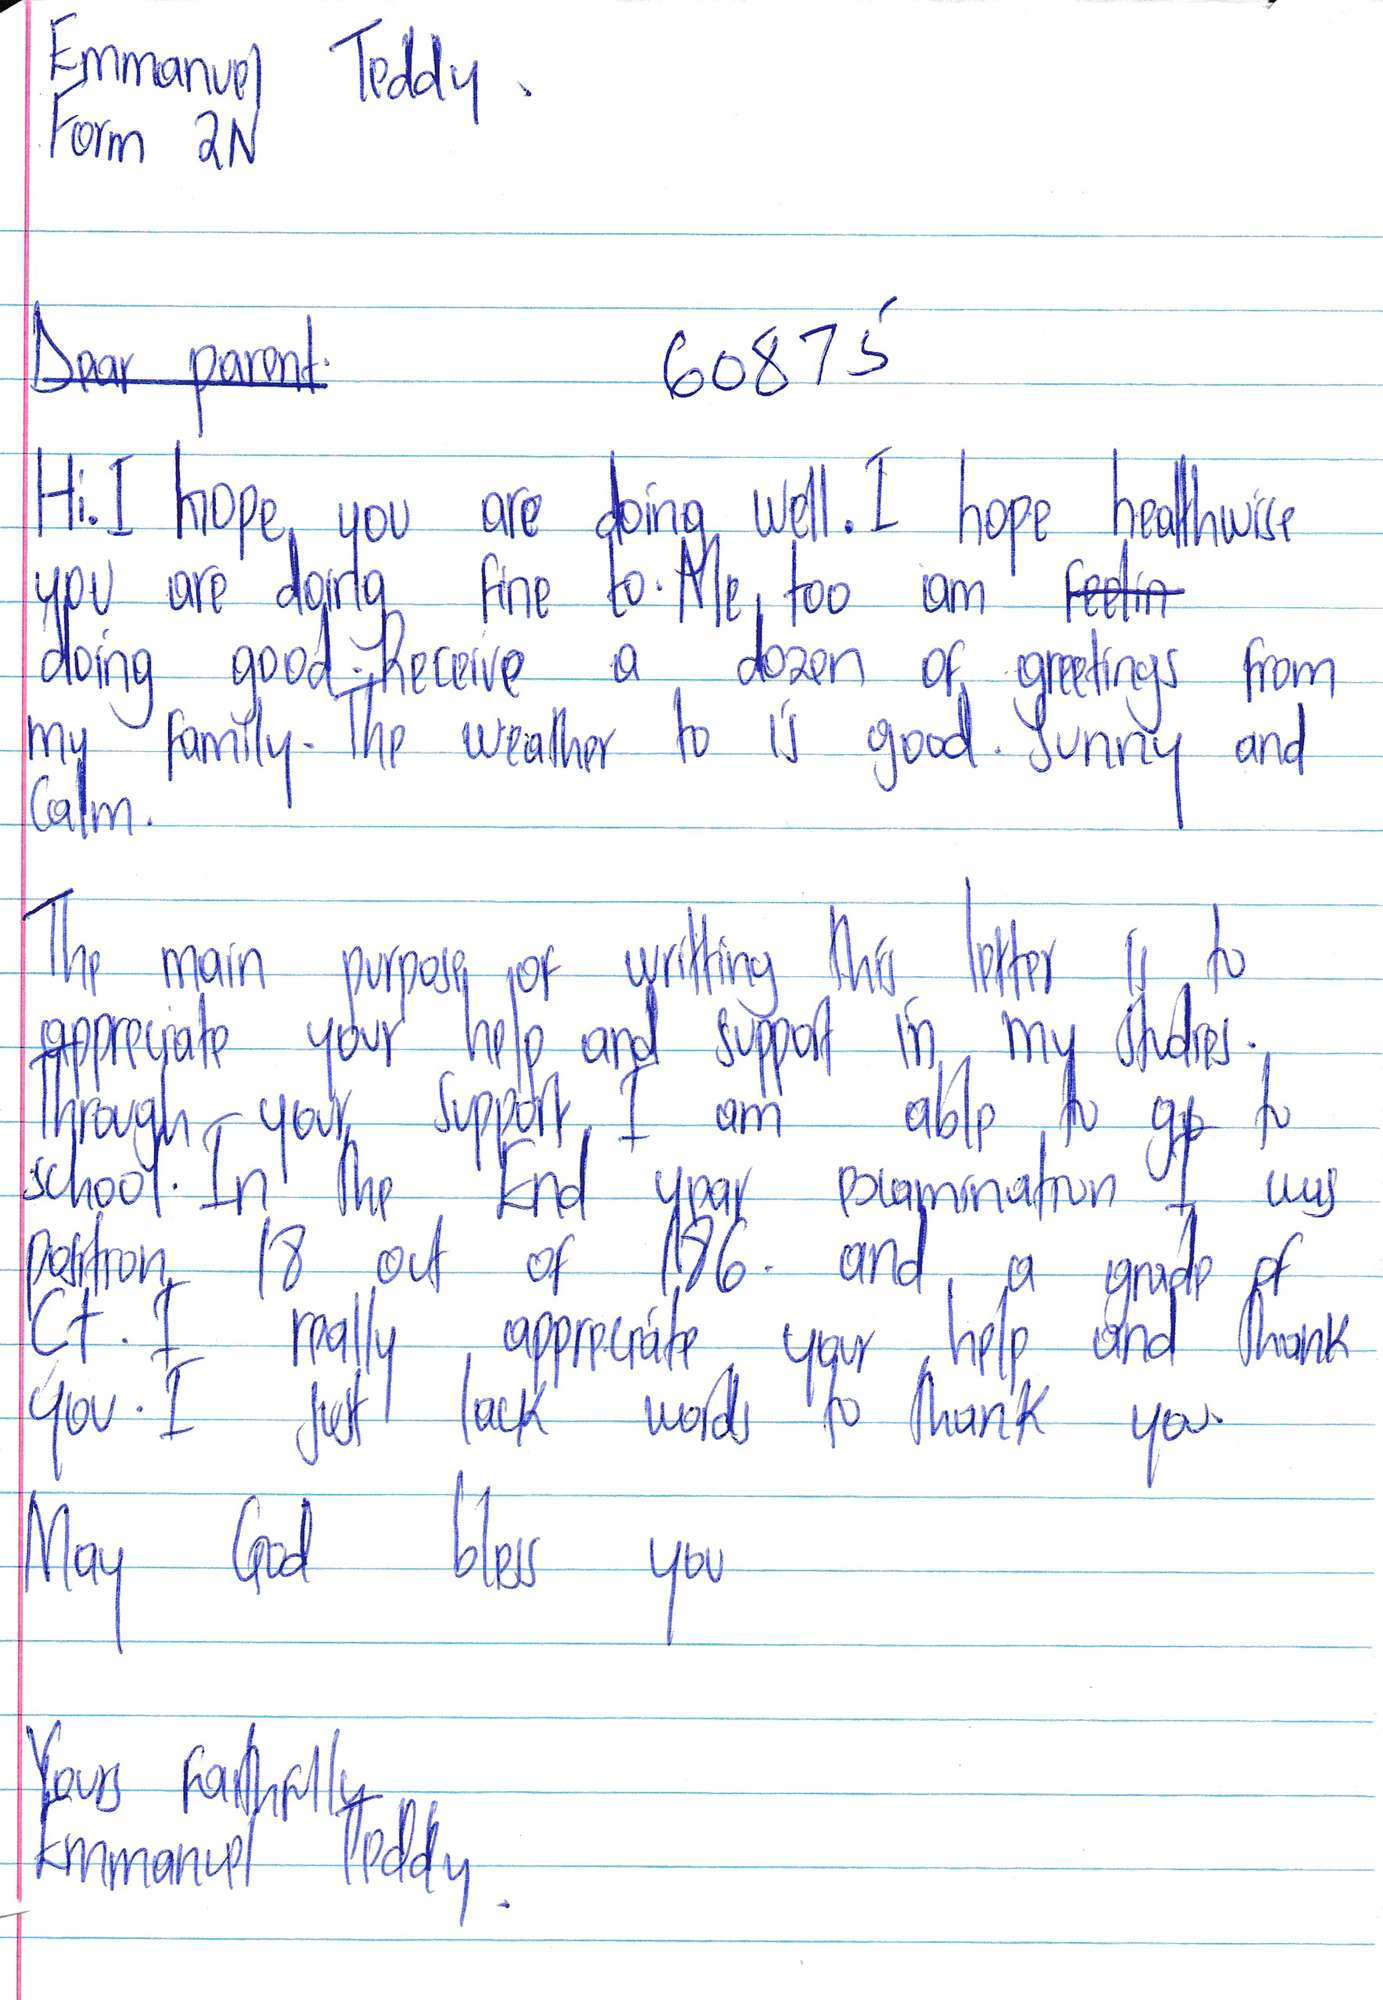 Emmanuel Teddy.
Form 2N
Dear parent. 60875
Hi. I hope you are doing well. I hope healthwise
you are doing fine to. Me too am feelin
doing good. Receive a dozen of greetings from
my family. The weather to is good. Sunny and
Calm.
The main purpose of writting this letter is to
appreciate your help and support in my studies.
Through your support I am able to go to
school. In the End year examination I was
position 18 out of 196. and a grade of
C+. I really appreciate your help and thank
you. I just lack words to thank you.
May God bless you
Yours Faithfully
Emmanuel Teddy.